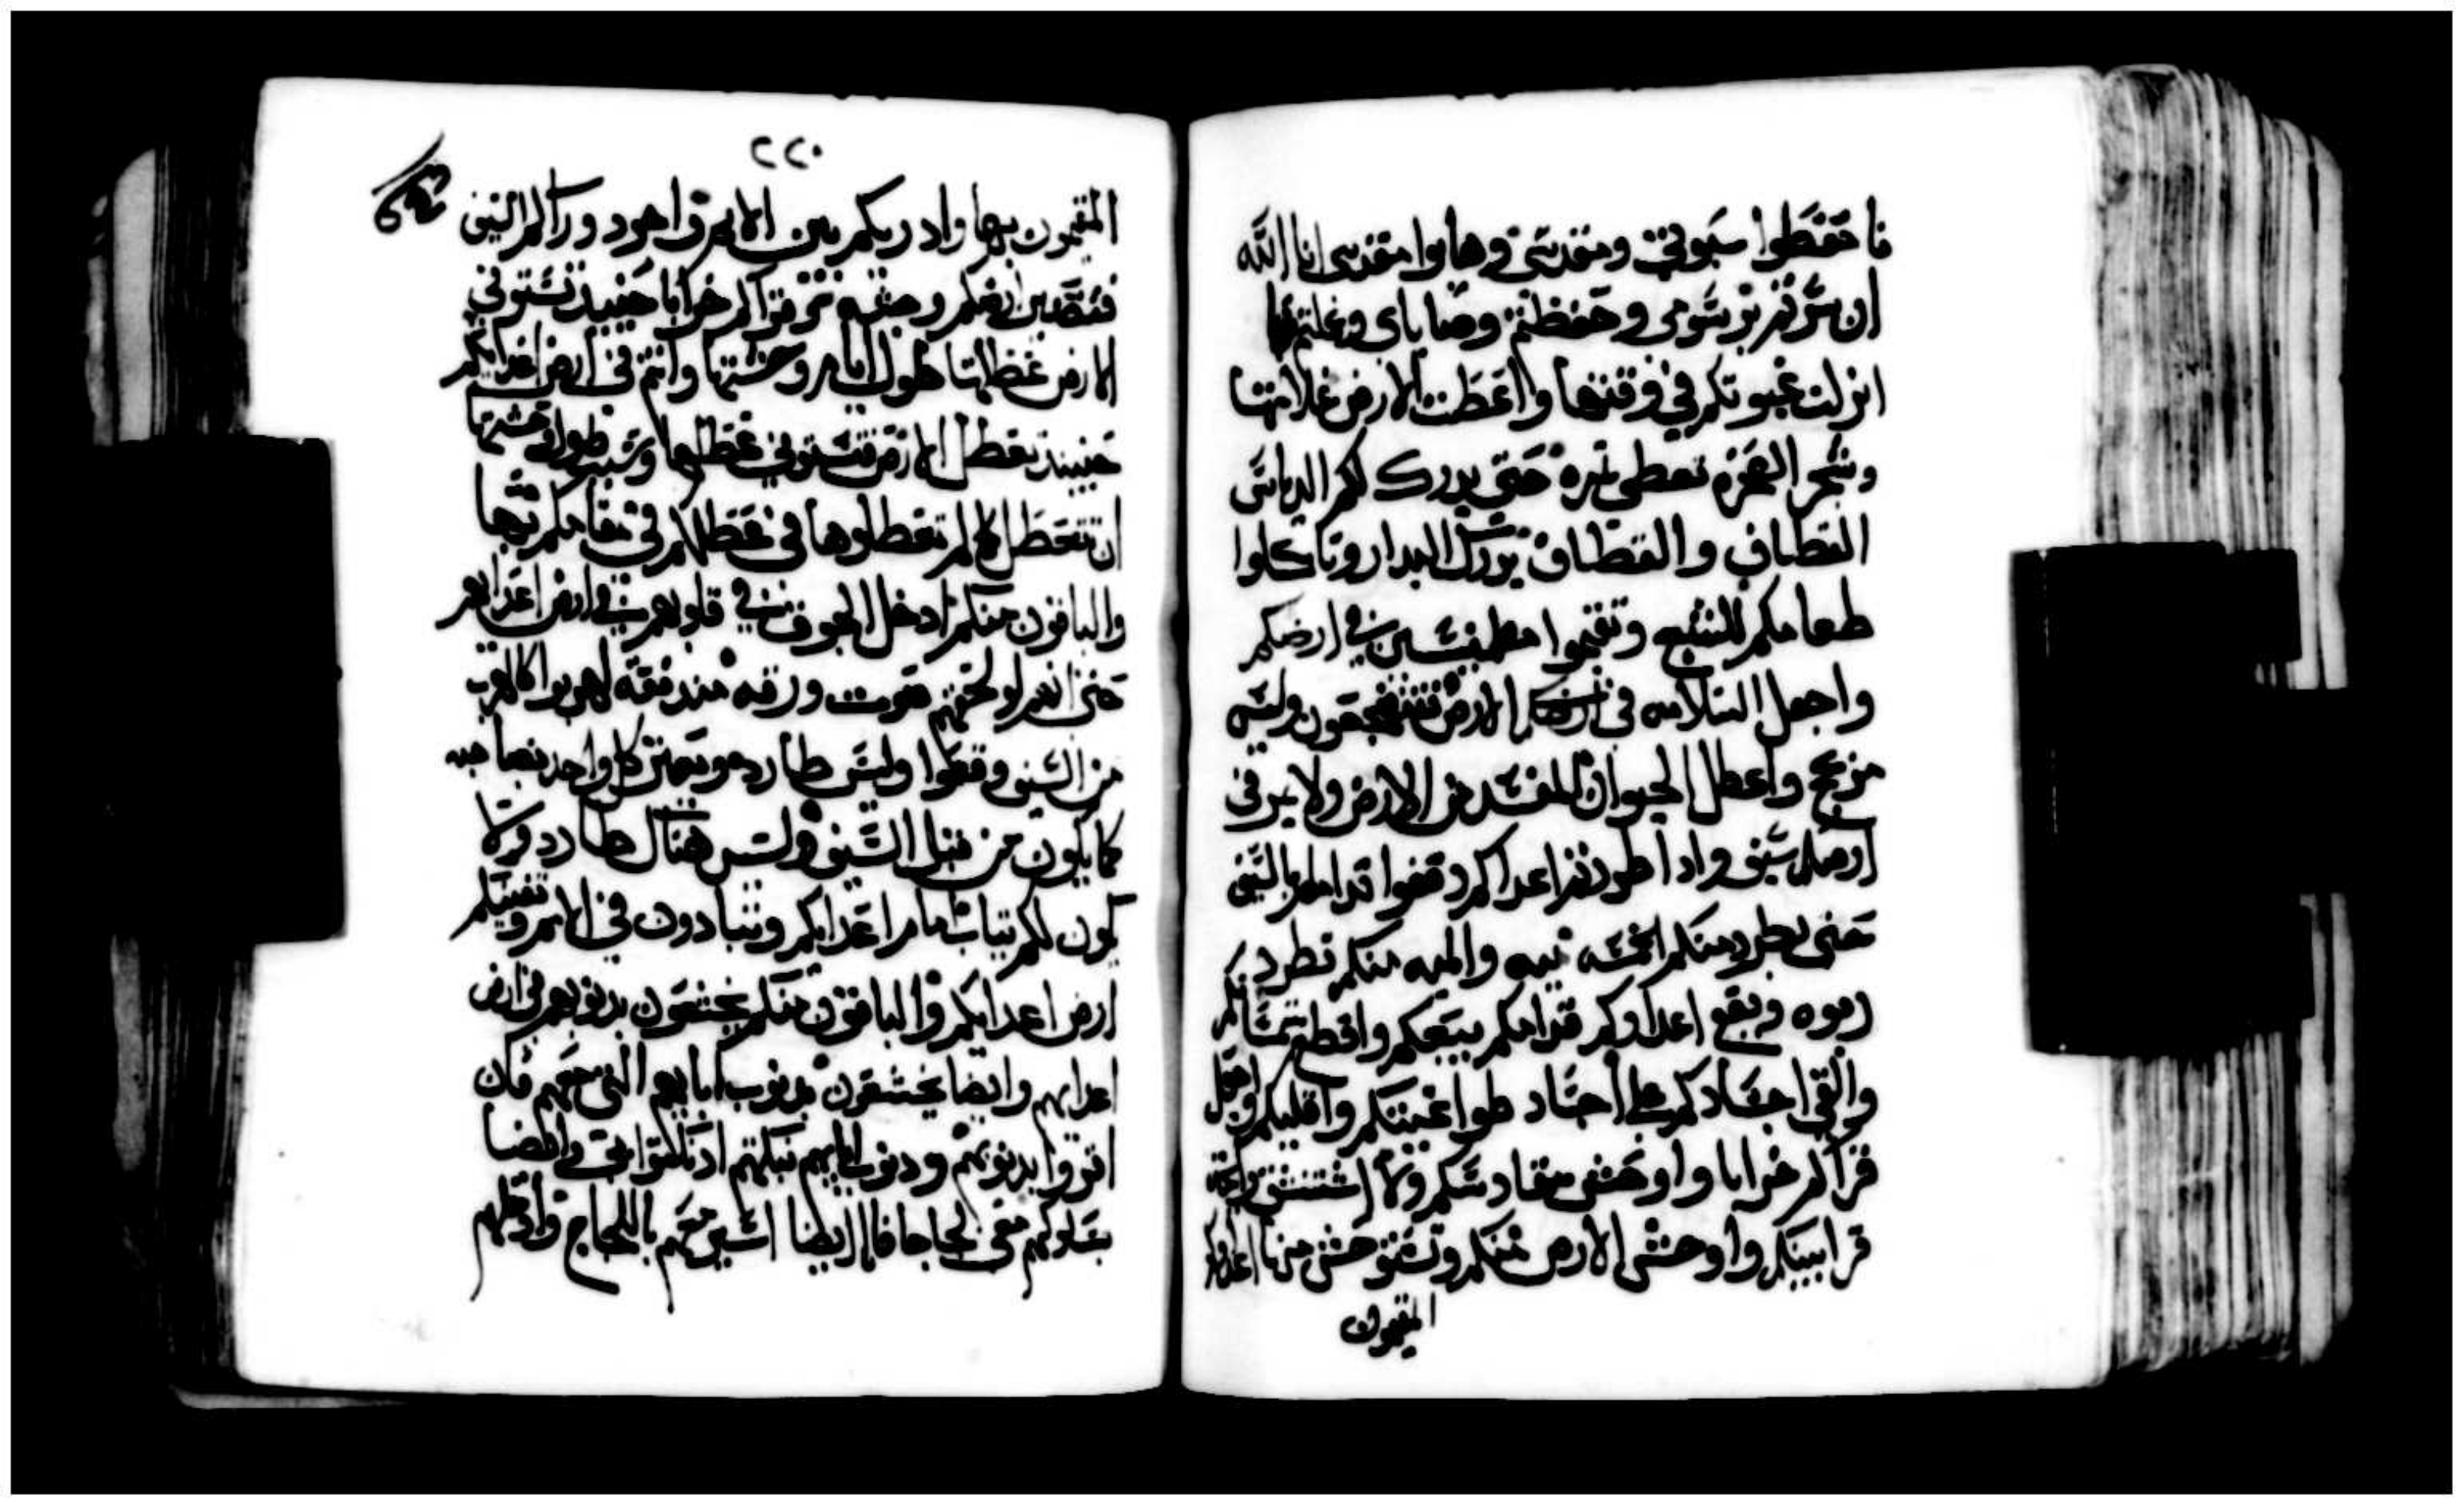 فاحفظوا سبوتي ومقدسي وهابوا مقدسي انا الله
ان سرتم برسومي وحفظتم وصاياي وعملتم بها
انزلت غيوثكم في وقتها واعطت الارض غلاتها
وشجر الصحرا تعطي ثمره حتى يدرك لكم الدياس
القطاف والقطاف يدرك البدار وتاكلوا
طعامكم للشبع وتقيموا مطمئنين في ارضكم
واجعل السلامه في الارض فتنضجعون وليس
مزعج واعطل الحيوان المفسد من الارض ولا يمر في
ارضكم سيف واذا طردتم اعداكم وقعوا قدامكم بالسيف
حتى يطرد منكم الخمسه ميه والميه منكم تطرد
ربوه ويقع اعداوكم قدامكم بسيفكم واقطع
والقي اجسادكم على اجساد طواغيتكم واقليكم واجعل
قراكم خرابا واوحش مقادسكم ولا استنشق رايحة
قرابينكم واوحش الارض منكم وتستوحش منها اعداوكم
المقيمون
٢٢٠
المقيمون بها واذريكم بين الامم واجرد وراكم السيف
فتصير ارضكم وحشه وقراكم خرابا حينيذ تستوفي
الارض عطلتها طول ايام وحشتها وانتم في ارض اعدايكم
حينيذ تعطل الارض فتستوفي عطلها وتسبت طول وحشتها
ان تتعطل كما لم تعطلوها في عطلكم في مقامكم بها
والباقون منكم ادخل الخوف في قلوبهم في ارض اعدايهم
حتى انهم لو لحقهم صوت ورقه مندفقه لهربوا كالهرب
من السيف وقعوا وليس طارد ويعثر كل واحد بصاحبه
كما يكون من قبل السيف وليس هناك طارد ولا
يكون لكم ثبات امام اعدايكم وتبادون في الامم وتفنيكم
ارض اعدايكم والباقون منكم ينحشقون بذنوبهم في ارض
اعدايهم وايضا ينحشقون بذنوب ابايهم التي معهم فان
اقروا بذنوبهم وذنوب ابايهم بنكثهم اذ نكثوا بي وايضا
بسلوكهم معي لجاجا فانا ايضا اسير معهم باللجاج وادخلهم